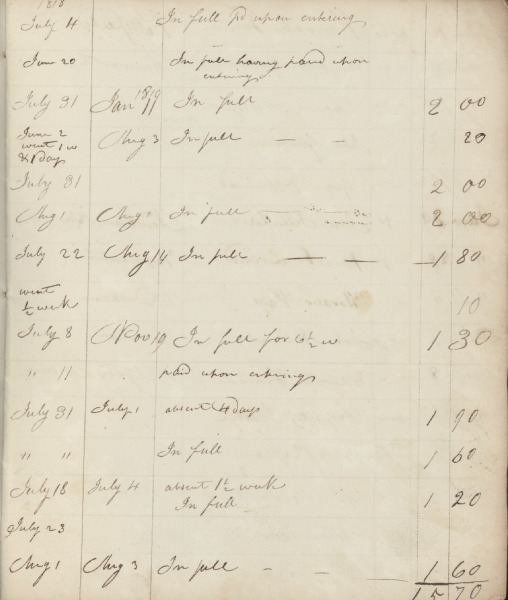 1818
July 4 In full pd upon entering
June 20 In full having paid upon
entering
1819
July 31 Jan 11 In full 2 00
June 2 Aug 3 In full — — 20
went 1 w
& 1 days
July 31 2 00
Aug 1 Aug 1 In full — 2 00
July 22 Aug 14 In full — — — 1 80
went
1/2 week 10
July 8 Nov 19 In full for 6 1/2 w 1 30
" 11 paid upon entering
July 31 July 1 absent 4 days 1 90
" " In full 1 60
July 18 July 4 absent 1 1/2 week
In full 1 20
July 23
Aug 1 Aug 3 In full — — 1 60
15 70